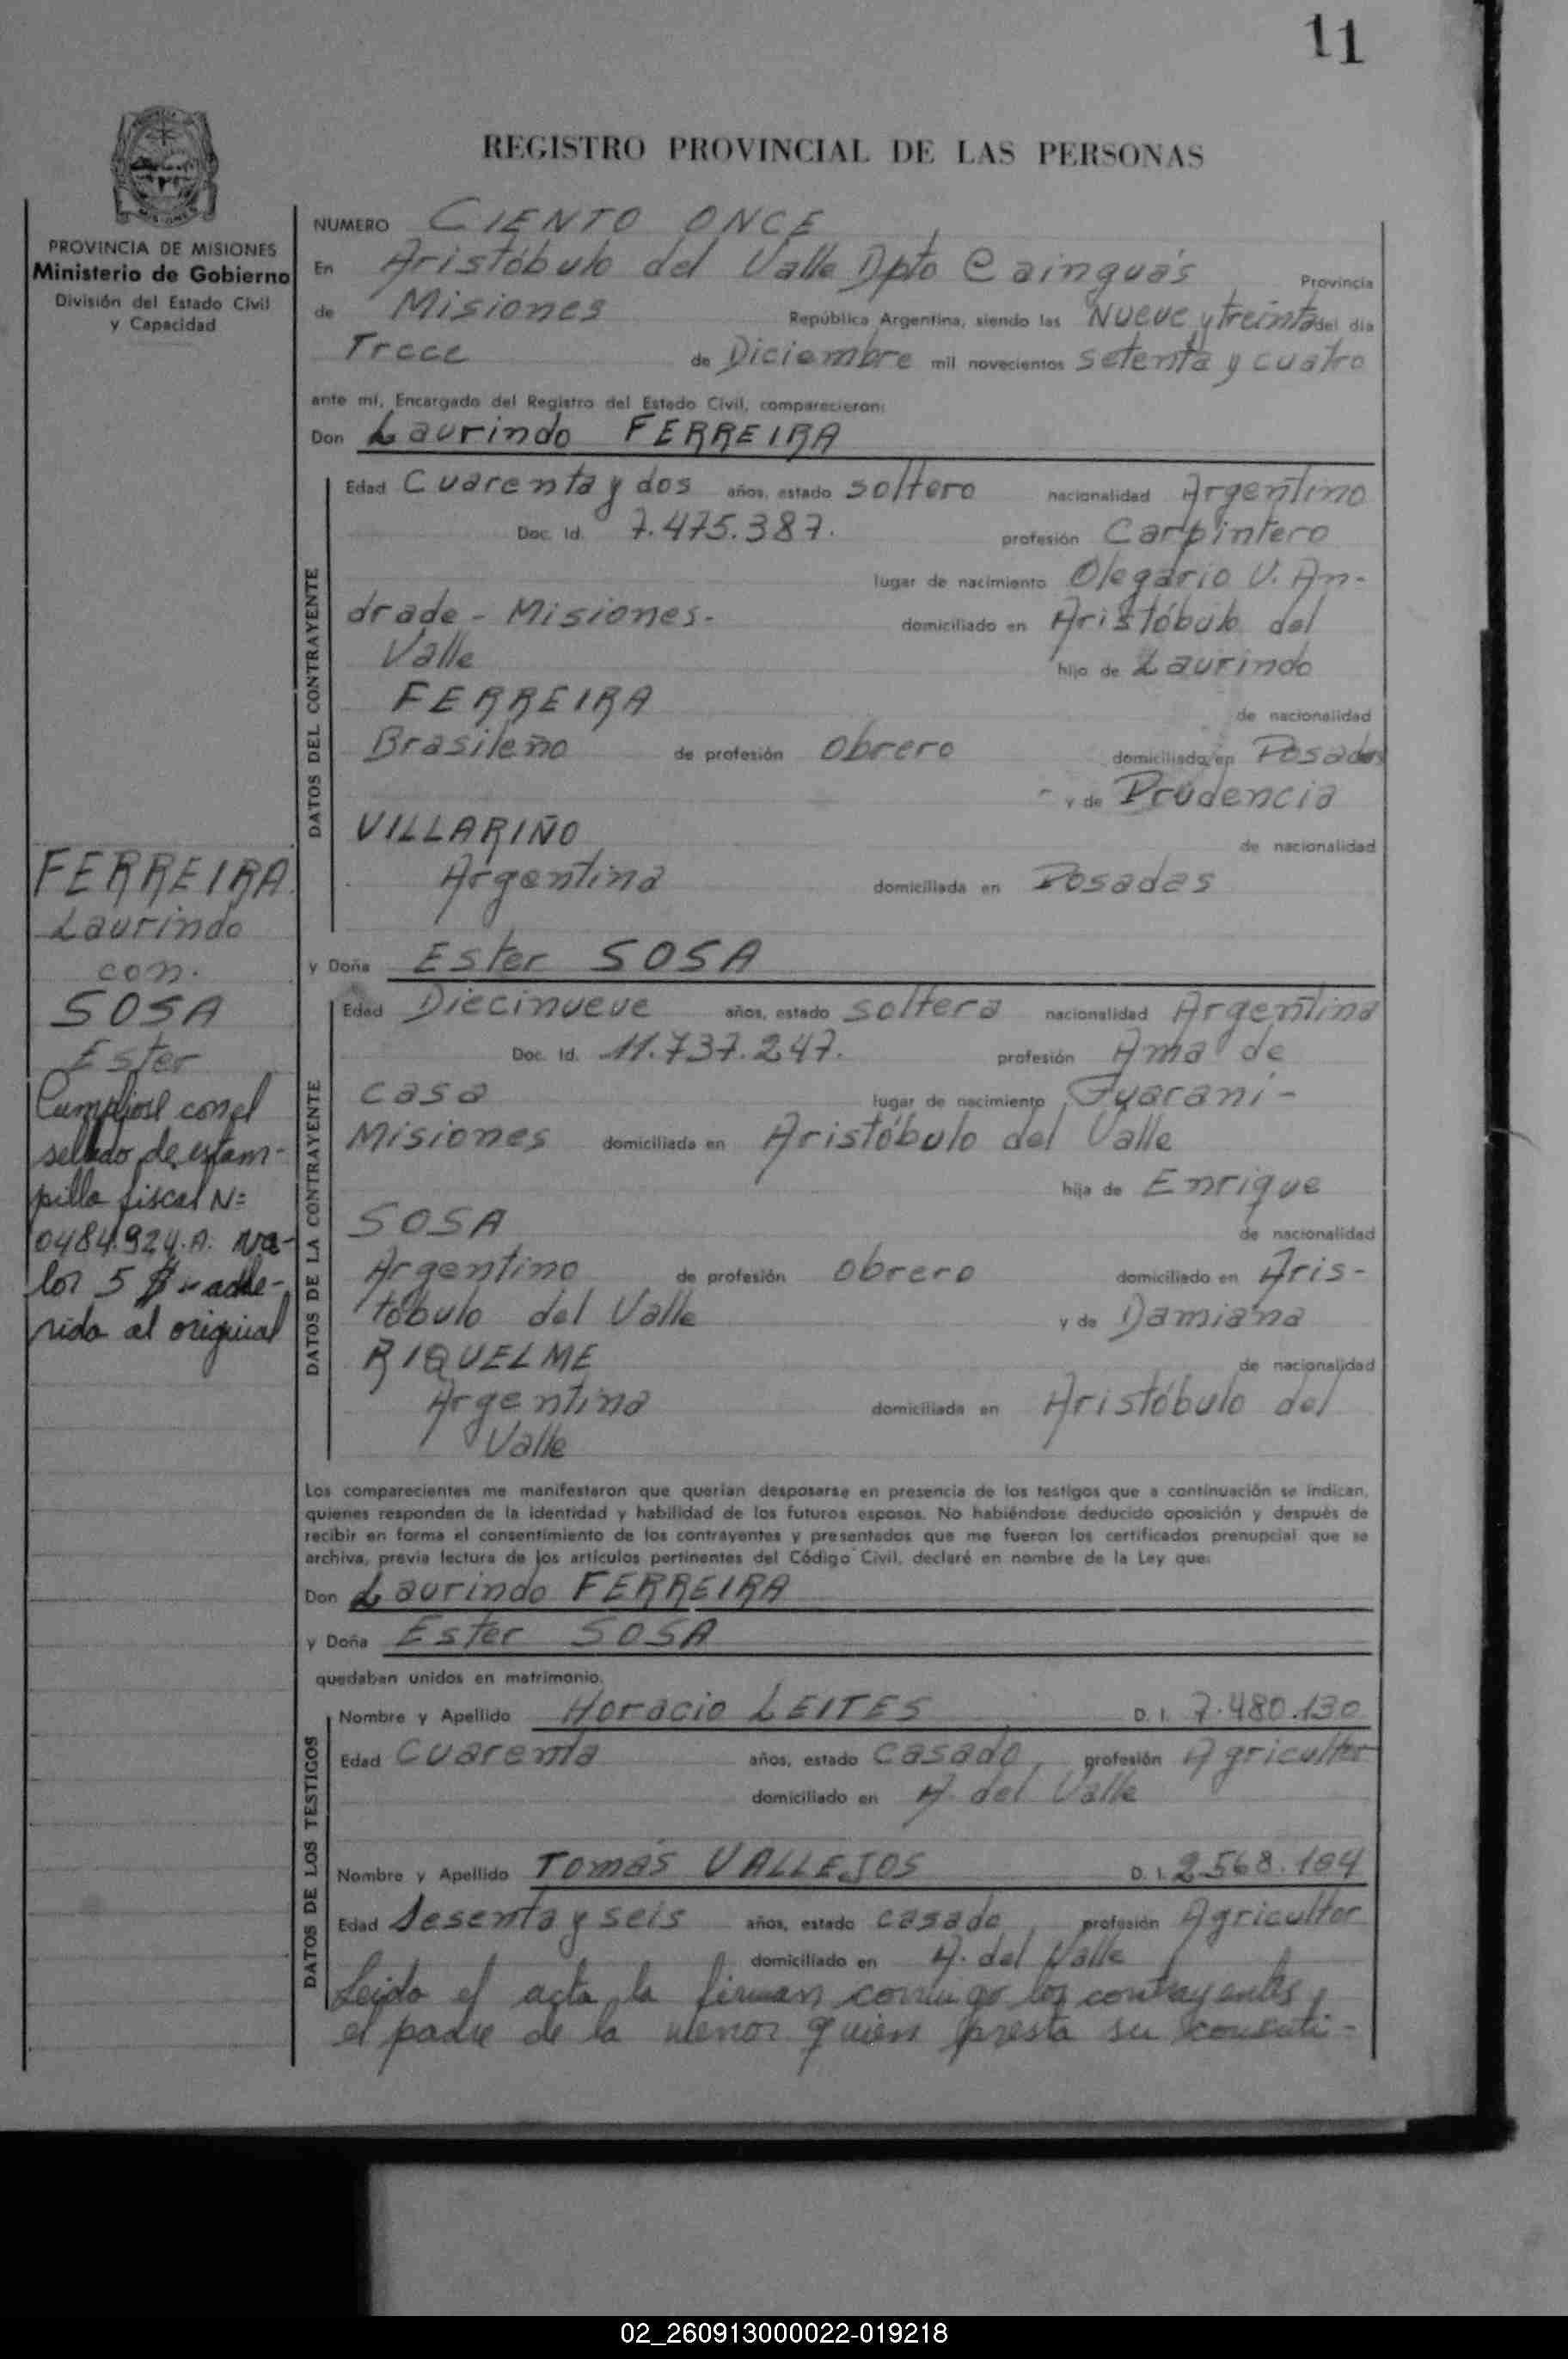 11
REGISTRO PROVINCIAL DE LAS PERSONAS
PROVINCIA DE MISIONES
Ministerio de Gobierno
División del Estado Civil
y Capacidad
FERREIRA
Laurindo
con.
SOSA
Ester
Cumpliose con el
sellado de estam-
pilla fiscal Nº
0484.924.A. va-
lor 5 $ adhe-
rida al original
NUMERO CIENTO ONCE
En Aristóbulo del Valle Dpto Cainguás Provincia
de Misiones República Argentina, siendo las Nueve y treinta del día
Trece de Diciembre mil novecientos setenta y cuatro
ante mí, Encargado del Registro del Estado Civil, comparecieron:
Don Laurindo FERREIRA
DATOS DEL CONTRAYENTE
Edad Cuarenta y dos años, estado soltero nacionalidad Argentino
Doc. Id. 7.475.387. profesión Carpintero
lugar de nacimiento Olegario V. An-
drade - Misiones- domiciliado en Aristóbulo del
Valle hijo de Laurindo
FERREIRA de nacionalidad
Brasileño de profesión Obrero domiciliado en Posadas
y de Prudencia
VILLARIÑO de nacionalidad
Argentina domiciliada en Posadas
y Doña Ester SOSA
DATOS DE LA CONTRAYENTE
Edad Diecinueve años, estado soltera nacionalidad Argentina
Doc. Id. 11.737.247. profesión Ama de
casa lugar de nacimiento Guaraní -
Misiones domiciliada en Aristóbulo del Valle
hija de Enrique
SOSA de nacionalidad
Argentino de profesión Obrero domiciliado en Aris-
tóbulo del Valle y de Damiana
RIQUELME de nacionalidad
Argentina domiciliada en Aristóbulo del
Valle
Los comparecientes me manifestaron que querían desposarse en presencia de los testigos que a continuación se indican,
quienes responden de la identidad y habilidad de los futuros esposos. No habiéndose deducido oposición y después de
recibir en forma el consentimiento de los contrayentes y presentados que me fueron los certificados prenupcial que se
archiva, previa lectura de los artículos pertinentes del Código Civil, declaré en nombre de la Ley que:
Don Laurindo FERREIRA
y Doña Ester SOSA
quedaban unidos en matrimonio.
DATOS DE LOS TESTIGOS
Nombre y Apellido Horacio LEITES D. I. 7.480.130
Edad Cuarenta años, estado casado profesión Agricultor
domiciliado en A. del Valle
Nombre y Apellido Tomás VALLEJOS D. I. 2.568.164
Edad Sesenta y seis años, estado casado profesión Agricultor
domiciliado en A. del Valle
Leída el acta la firman conmigo los contrayentes y
el padre de la menor quien presta su consenti-
02_260913000022-019218